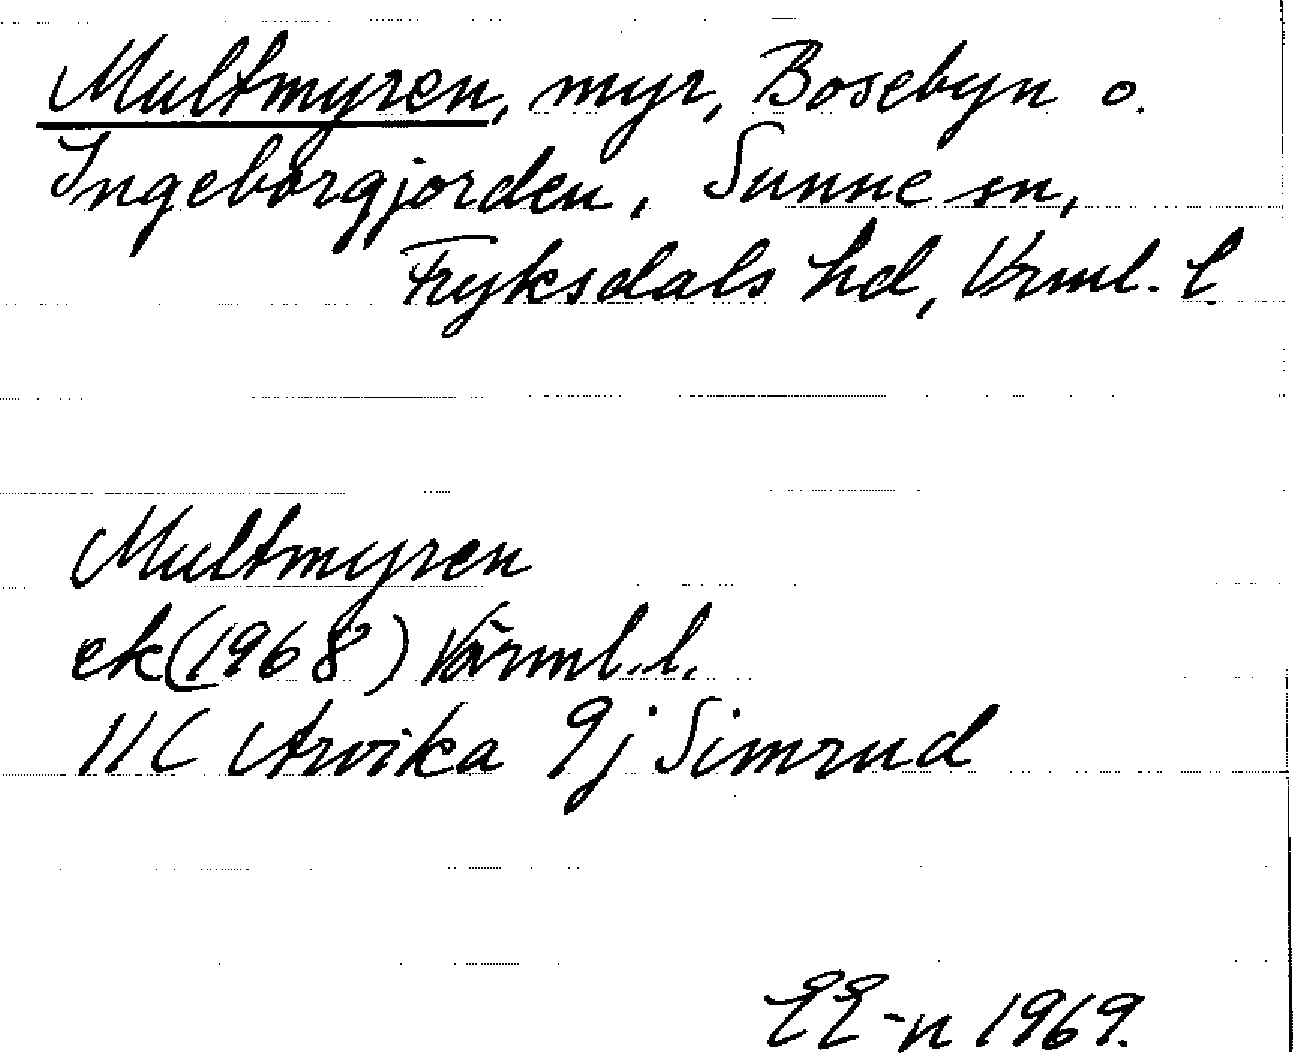 Multmyren, myr, Bosebyn o.
Ingeborgjorden, Sunne sn,
Fryksdals hd, Vrml. l.
Multmyren
ek (1968) Värml. l.
11C Arvika 9j Simrud
EE-n 1969.